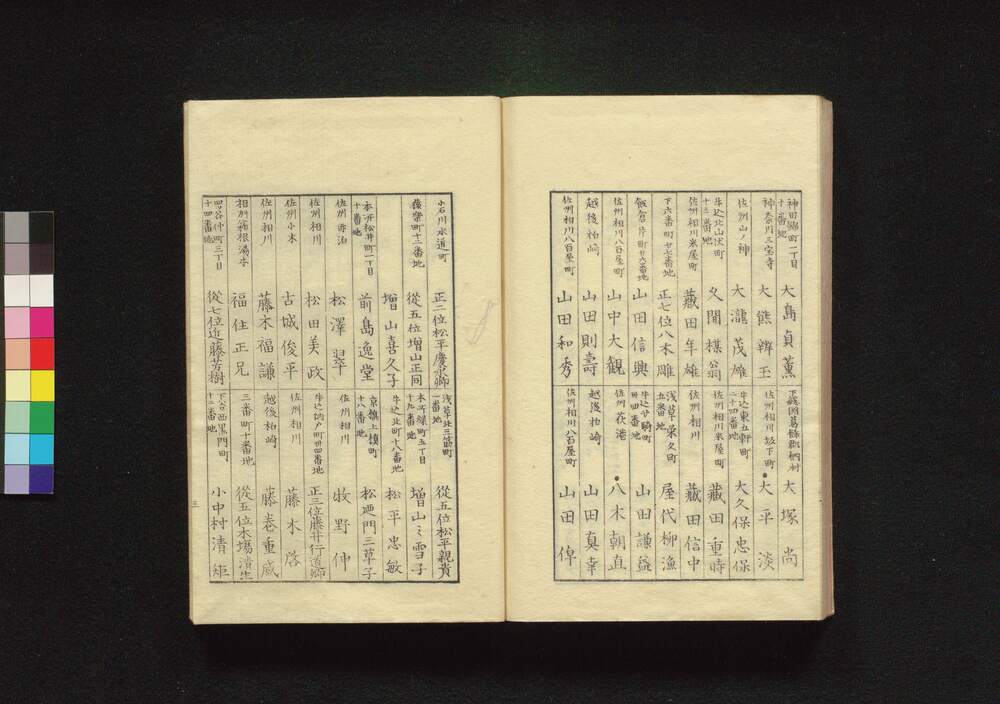 神田錦町一丁目十番地 大島貞薫
神奈川三宝寺 大熊辨玉
佐州山ノ神 大瀧茂雄
牛込北山伏町十三番地 久閒楳翁
佐州相川米屋町 蔵田年雄
下六番町廿七番地 正七位八木雕
飯倉片町廿六番地 山田信興
佐州相川八百屋町 山中大観
越後柏崎 山田則壽
佐州相川八百屋町 山田和秀
大塚尚
佐州相川坂下町 大平淡
牛込東五軒町二十四番地 大久保忠保
佐州相川米屋町 蔵田重時
佐州相川 蔵田信中
浅草栄久町五番地 屋代柳漁
山田謙益
佐州荻港 八木朝直
越後柏崎 山田真幸
佐州相川八百屋町 山田俾
小石川水道町 正二位松平慶永卿
町十三番地 從五位増山正同
増山喜久子
本所松井町一丁目十番地 前島逸堂
佐州赤泊 松澤翠
佐州相川 松田美政
佐州小木 古城俊平
佐州相川 藤木福謙
相州箱根湯本 福住正兄
四谷仲町三丁目十四番地 從七位近藤芳樹
浅草北三筋町一番地 從五位松平親貴
本所緑町五丁目十九番地 増山三雪子
牛込北町十八番地 松平忠敏
京橋上槙町十八番地 松廼門三草子
佐州相川 牧野仲
正三位藤井行道卿
佐州相川 藤木啓
越後柏崎 藤巻重威
三番町十番地 從五位木場清生
下谷西黒門町十二番地 小中村清矩
三